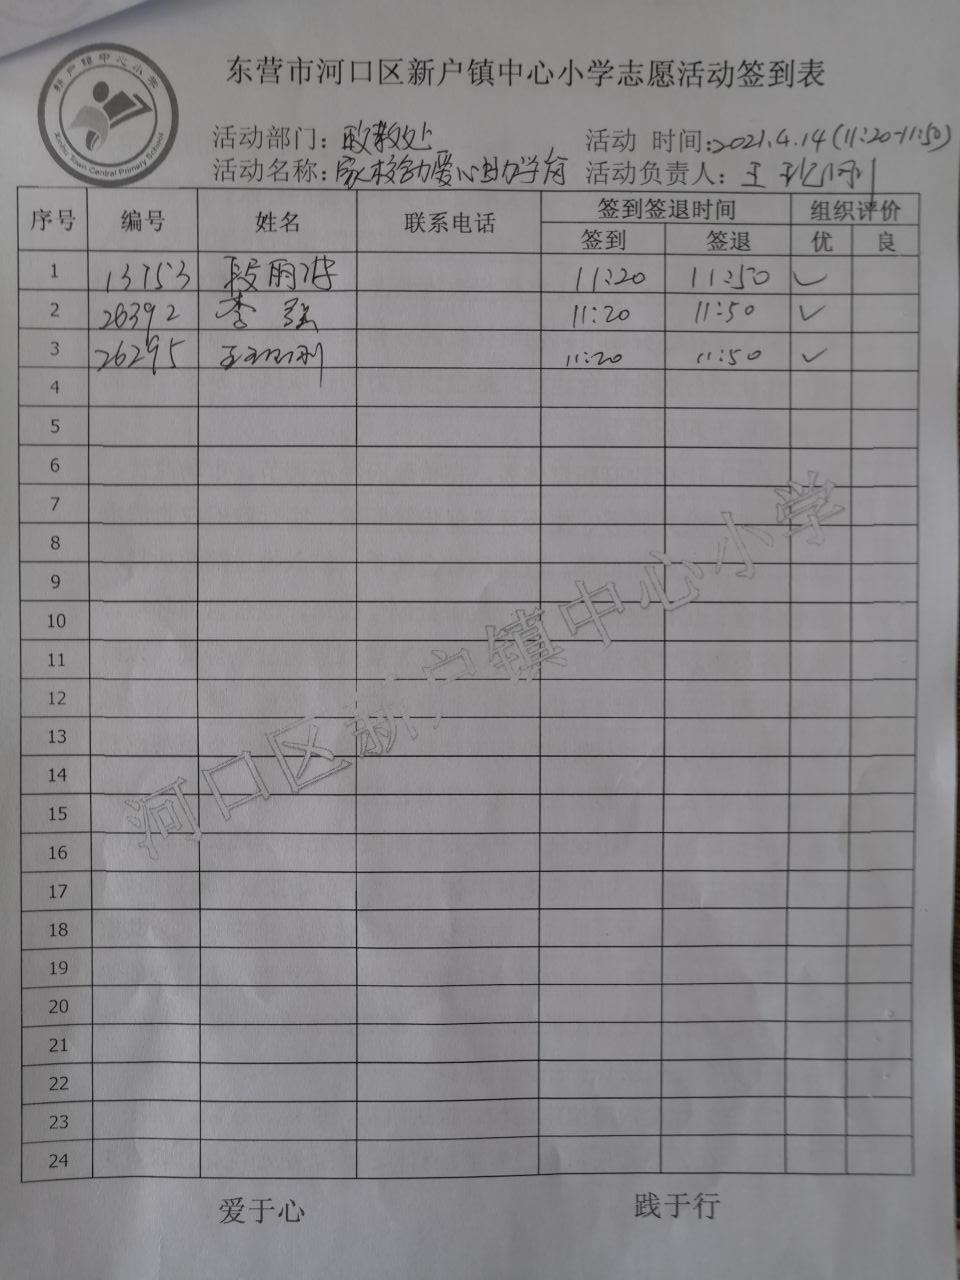 新户镇中心小学
Xinhu Town Central Primary School
东营市河口区新户镇中心小学志愿活动签到表
活动部门: 政教处 活动 时间: 2021.4.14(11:20-11:50)
活动名称: 家校合力爱心助学 活动负责人: 王
序号 编号 姓名 联系电话 签到签退时间 组织评价
签到 签退 优 良
1 13753 段雨 11:20 11:50 ✓
2 26392 李强 11:20 11:50 ✓
3 26295 王 11:20 11:50 ✓
4
5
6
7
8
9
10
11
12
13
14
15
16
17
18
19
20
21
22
23
24
河口区新户镇中心小学
爱于心 践于行